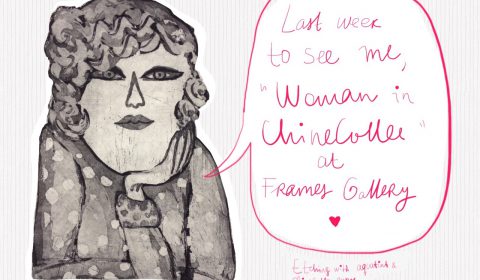 Last week
to see me,
"Woman in
ChineCollee"
at
Frames Gallery
Etching with aquatint &